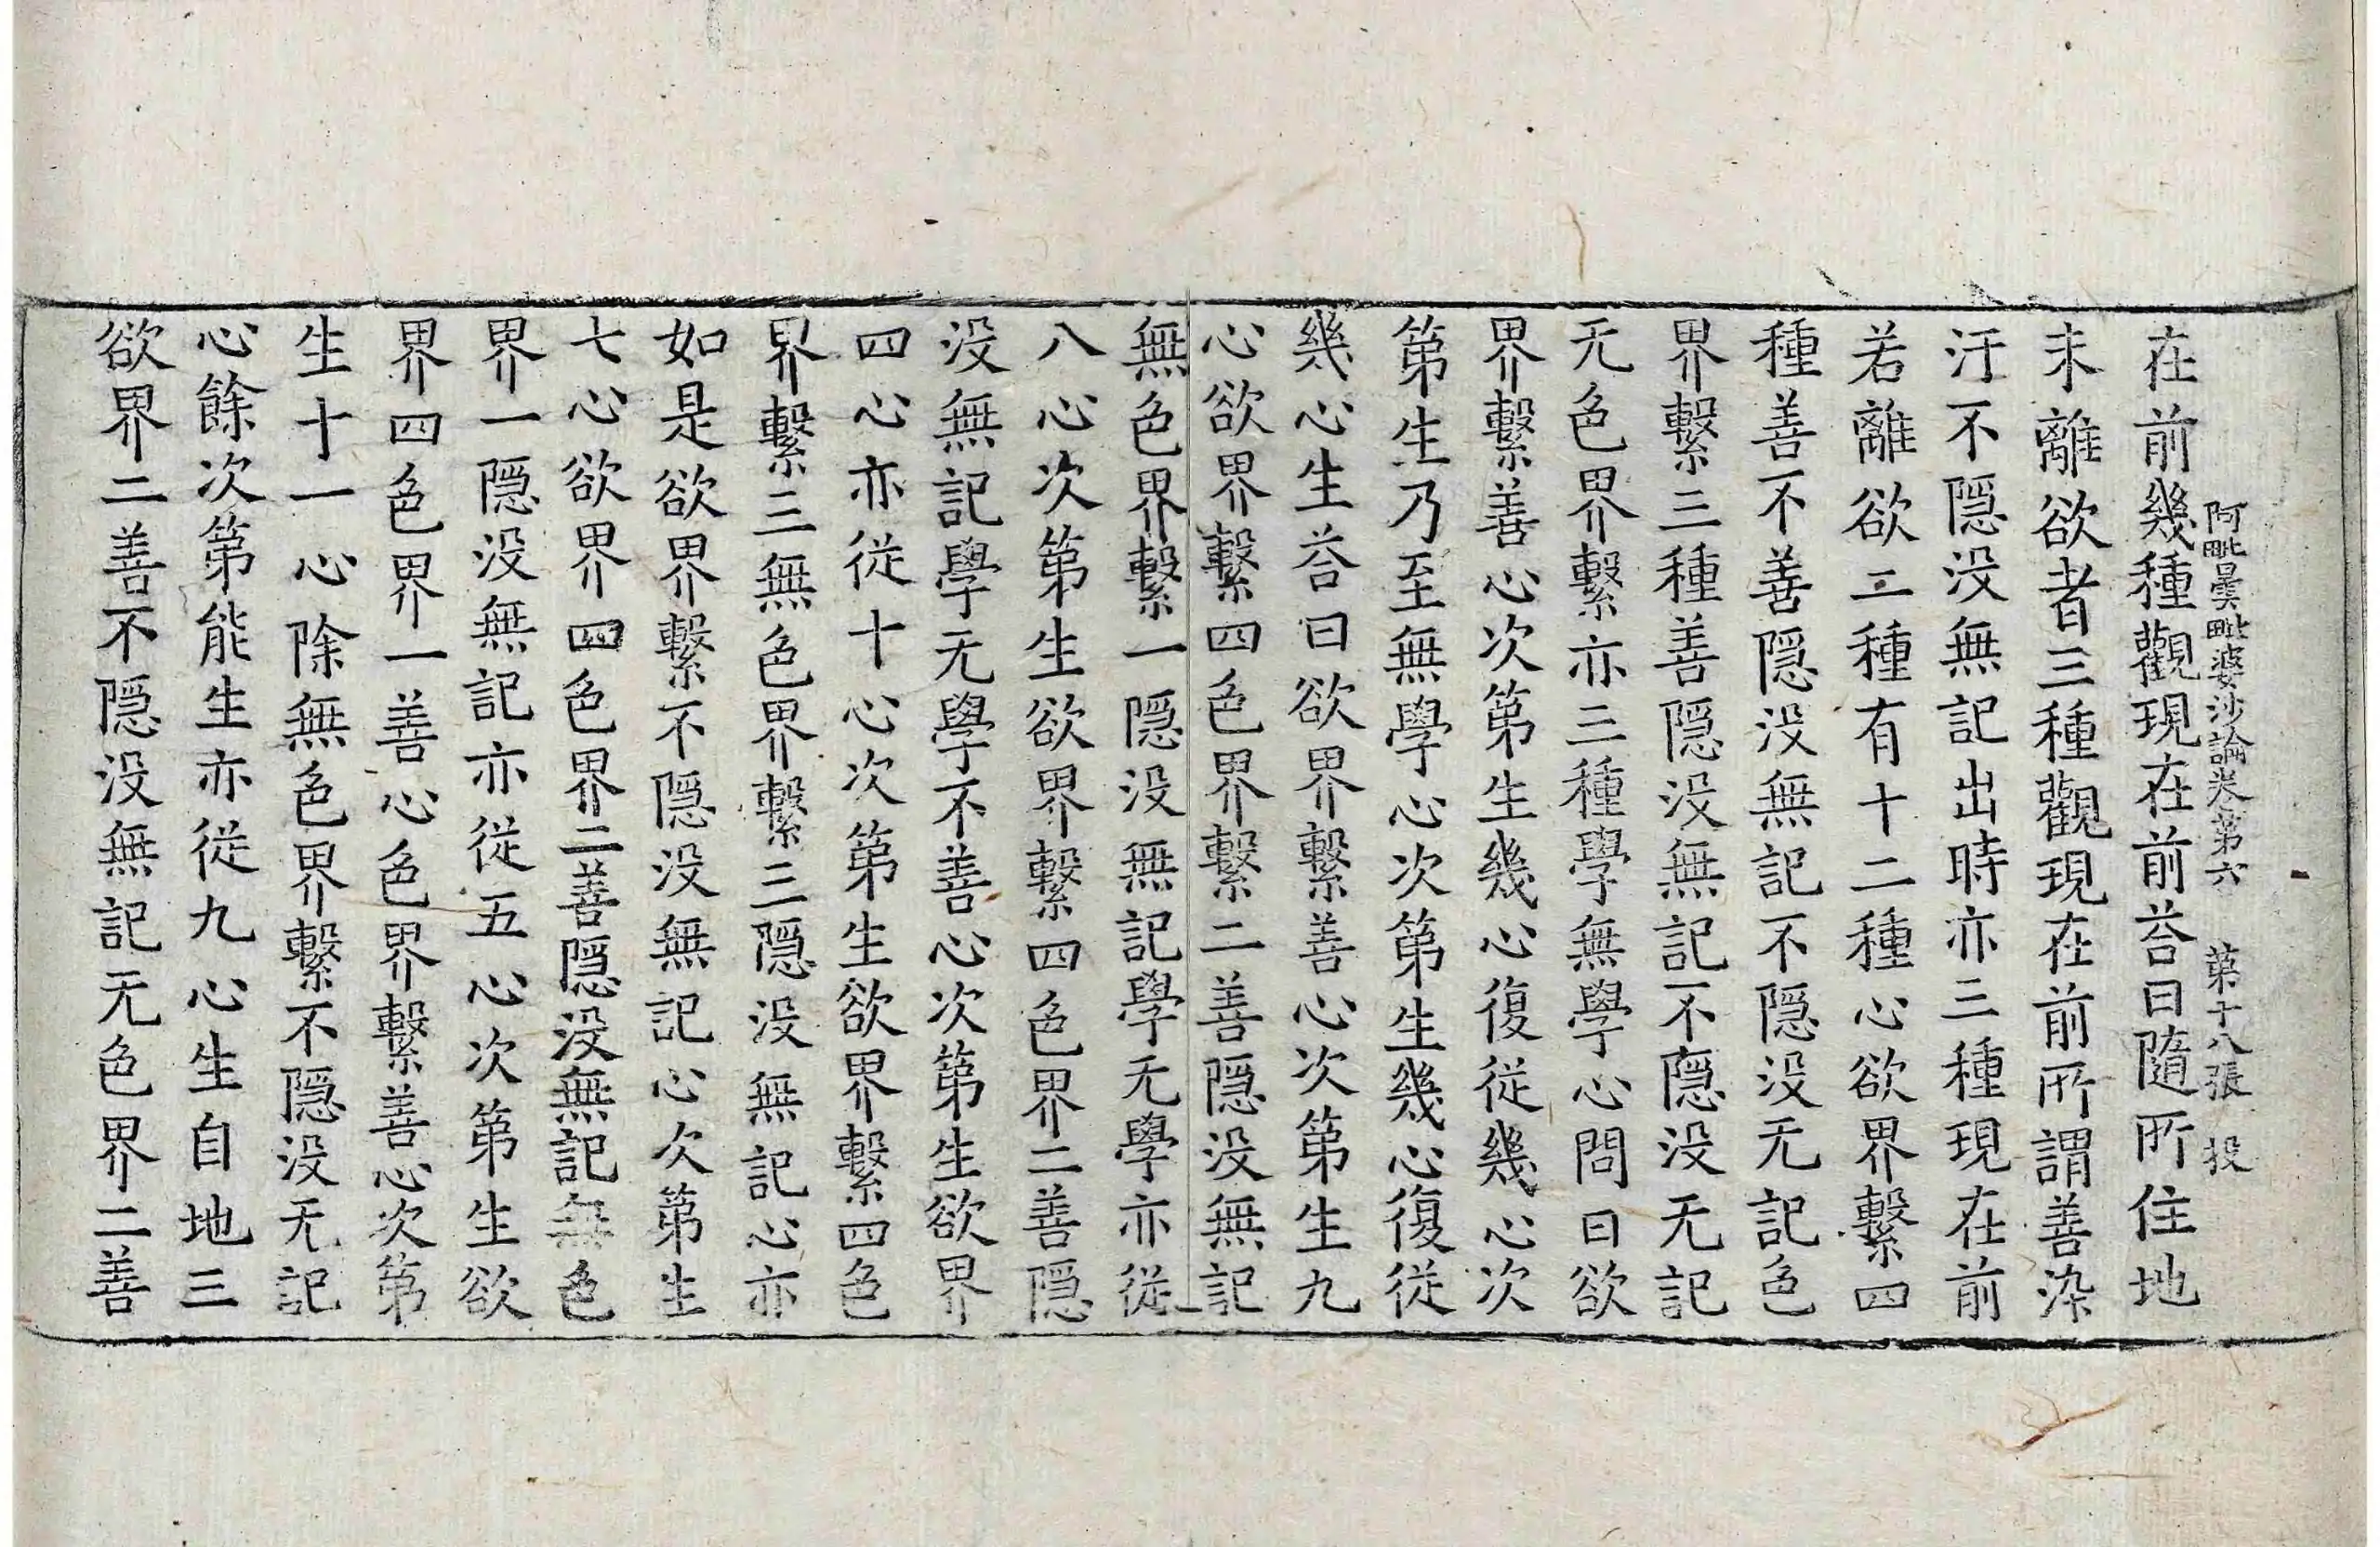 阿毗曇毗婆沙論卷第六 第十八張 投
在前幾種觀現在前荅曰隨所住地
未離欲者三種觀現在前所謂善染
汙不隱没無記出時亦三種現在前
若離欲二種有十二種心欲界繫四
種善不善隱没無記不隱没无記色
界繫三種善隱没無記不隱没无記
无色界繫亦三種學無學心問曰欲
界繫善心次第生幾心復從幾心次
第生乃至無學心次第生幾心復從
幾心生荅曰欲界繫善心次第生九
心欲界繫四色界繫二善隱没無記
無色界繫一隱没無記學无學亦從
八心次第生欲界繫四色界二善隱
没無記學无學不善心次第生欲界
四心亦從十心次第生欲界繫四色
界繫三無色界繫三隱没無記心亦
如是欲界繫不隱没無記心次第生
七心欲界四色界二善隱没無記無色
界一隱没無記亦從五心次第生欲
界四色界一善心色界繫善心次第
生十一心除無色界繫不隱没无記
心餘次第能生亦從九心生自地三
欲界二善不隱没無記无色界二善